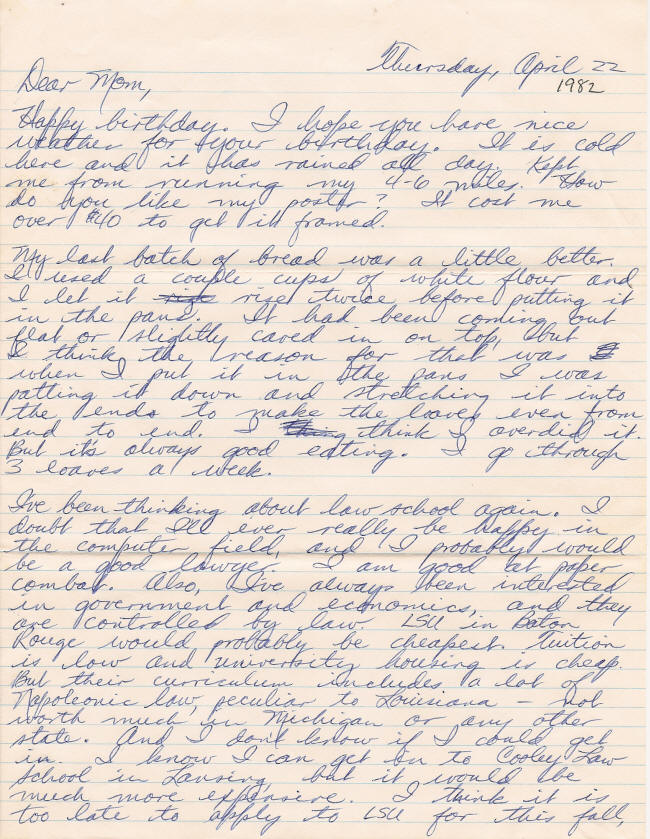 Thursday, April 22
1982
Dear Mom,
Happy birthday. I hope you have nice
weather for your birthday. It is cold
here and it has rained all day. Kept
me from running my 4-6 miles. How
do you like my poster? It cost me
over $40 to get it framed.
My last batch of bread was a little better.
I used a couple cups of white flour and
I let it rise twice before putting it
in the pans. It had been coming out
flat or slightly caved in on top, but
I think the reason for that was
when I put it in the pans I was
patting it down and stretching it into
the ends to make the loaves even from
end to end. I think I overdid it.
But it's always good eating. I go through
3 loaves a week.
I've been thinking about law school again. I
doubt that I'll ever really be happy in
the computer field, and I probably would
be a good lawyer. I am good at paper
combat. Also, I've always been interested
in government and economics, and they
are controlled by law. LSU in Baton
Rouge would probably be cheapest. Tuition
is low and university housing is cheap.
But their curriculum includes a lot of
Napoleonic law, peculiar to Louisiana – not
worth much in Michigan or any other
state. And I don't know if I could get
in. I know I can get in to Cooley Law
School in Lansing, but it would be
much more expensive. I think it is
too late to apply to LSU for this fall,